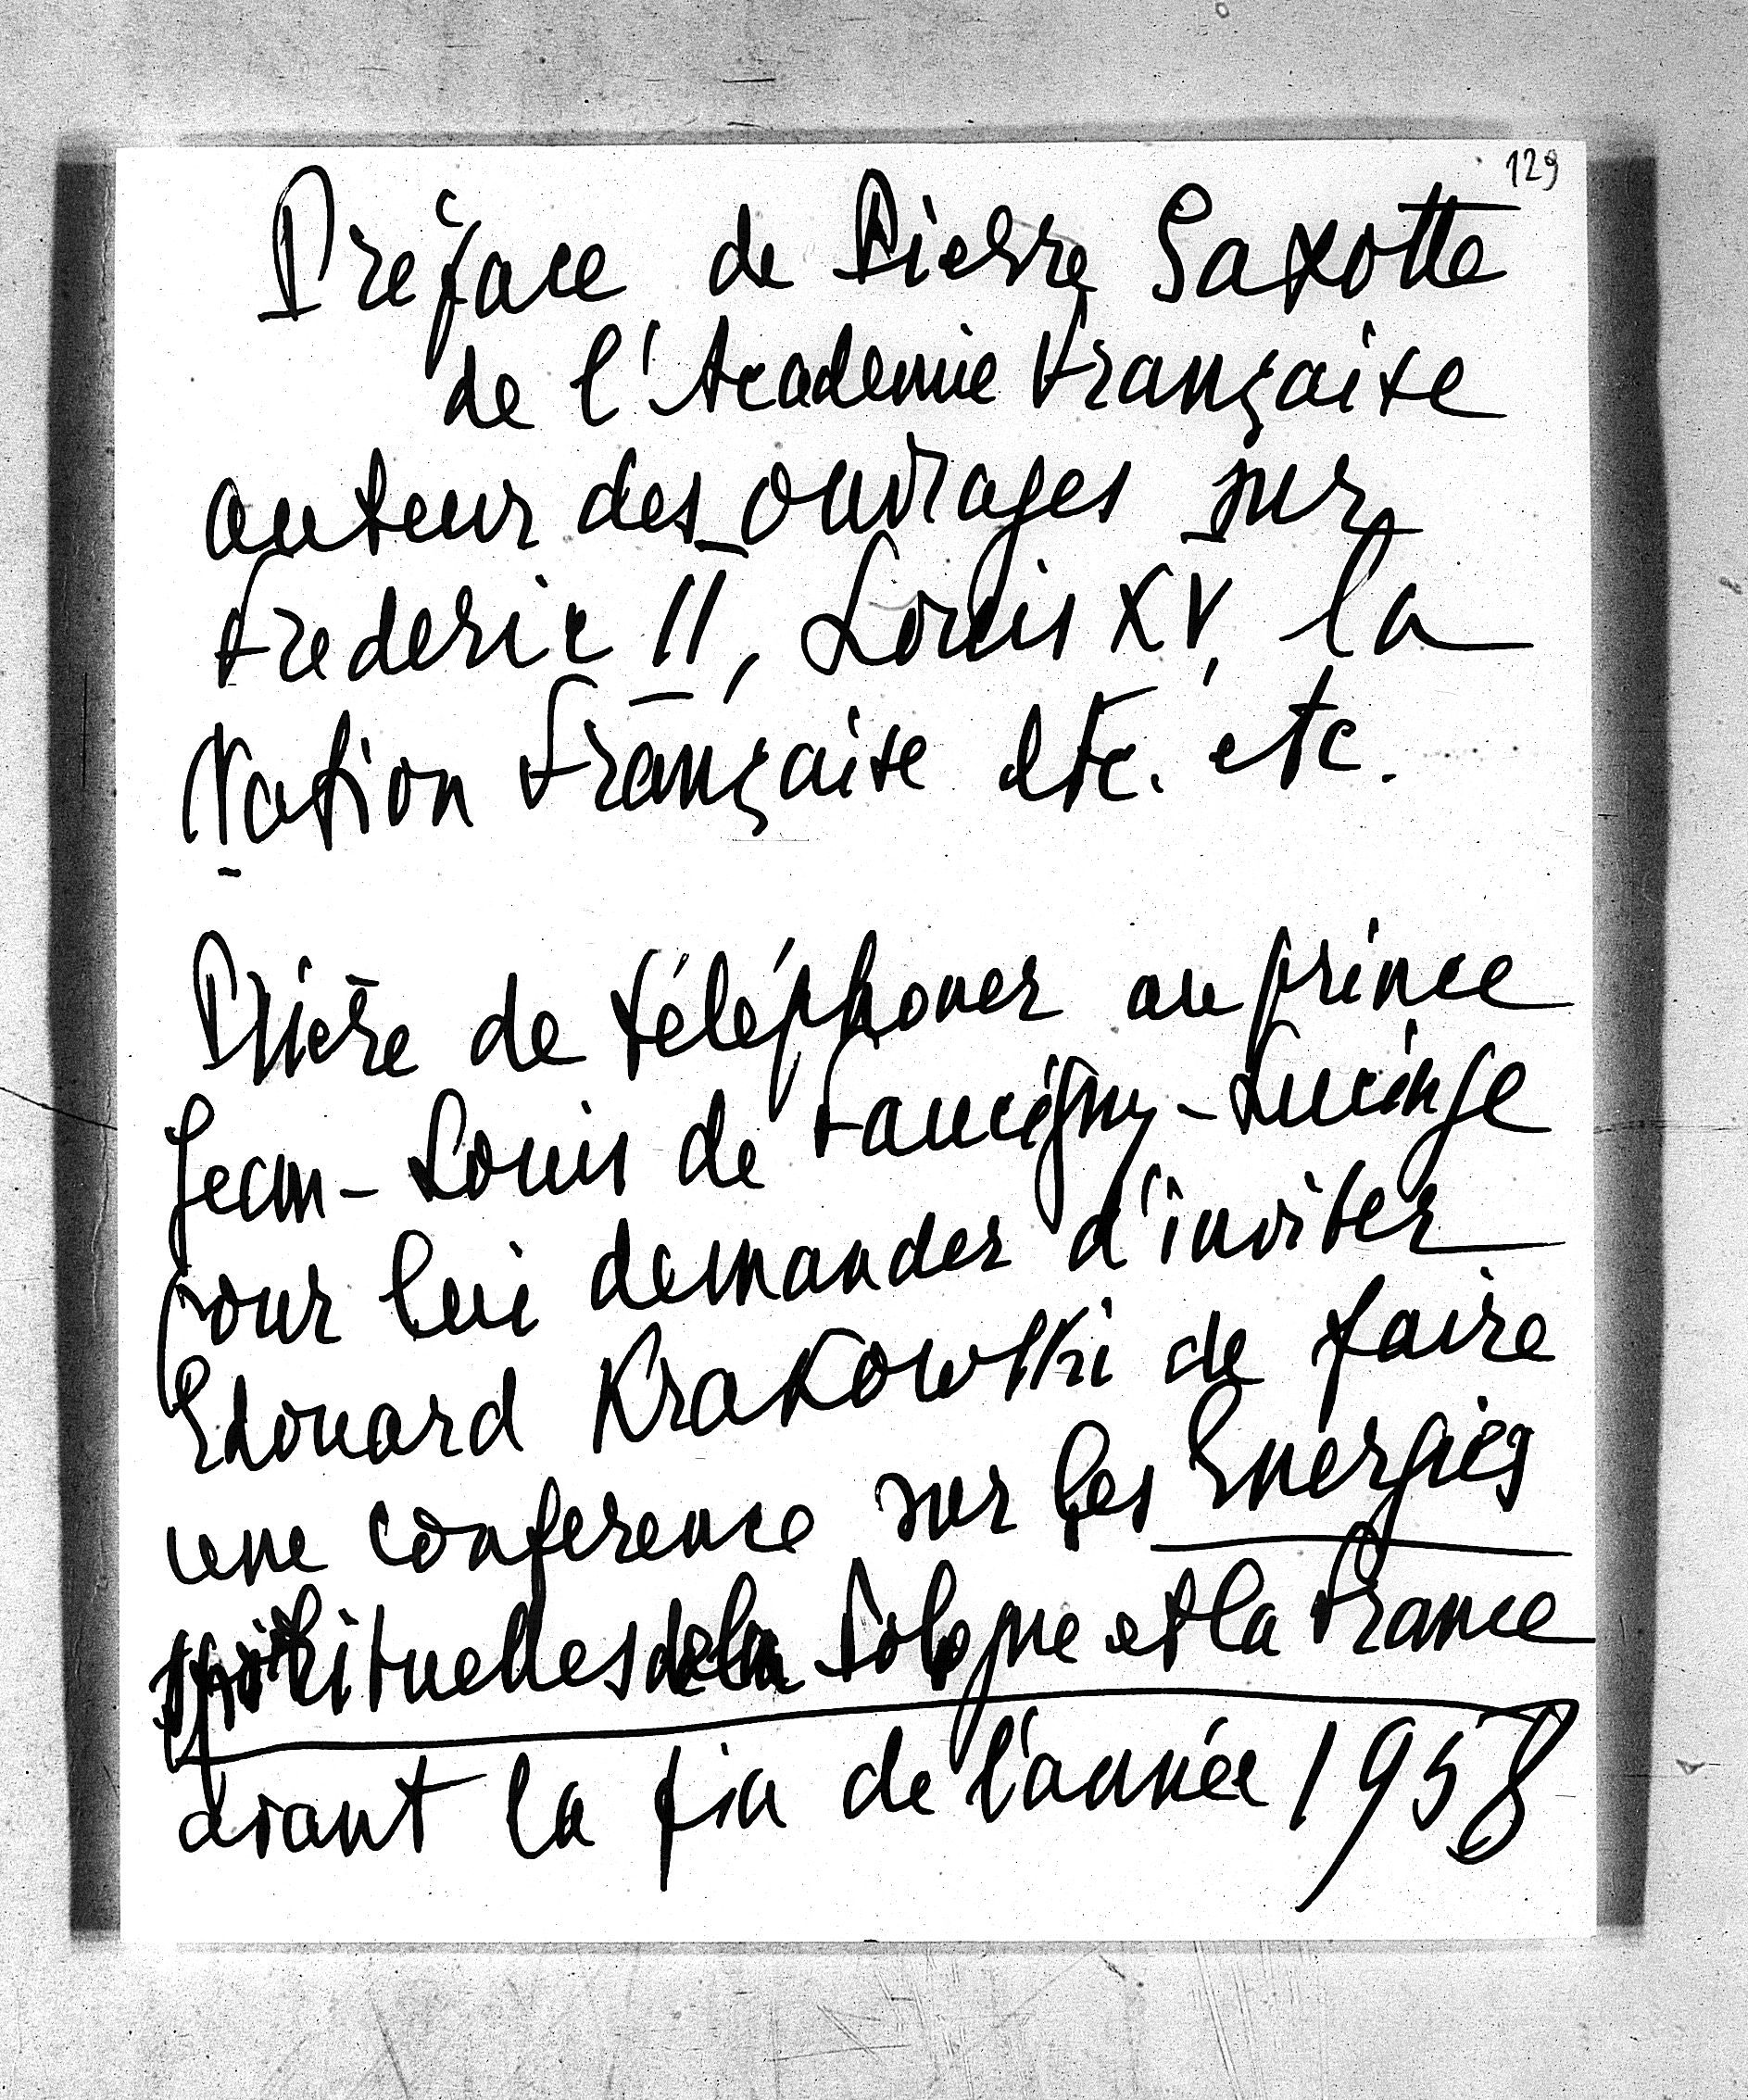 129
Préface de Pierre Gaxotte
de l'Academie Française
auteur des ouvrages sur
Frederic II, Louis XV, la
Nation Française etc. etc.
Prière de téléphoner au prince
Jean-Louis de Faucigny-Lucinge
pour lui demander d'inviter
Edouard Krakowski de faire
une conference sur les Energies
spirituelles de la Pologne et la France
avant la fin de l'année 1958